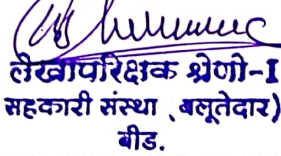 लेखापरिक्षक श्रेणी-I
सहकारी संस्था ,बलूतेदार)
बीड.